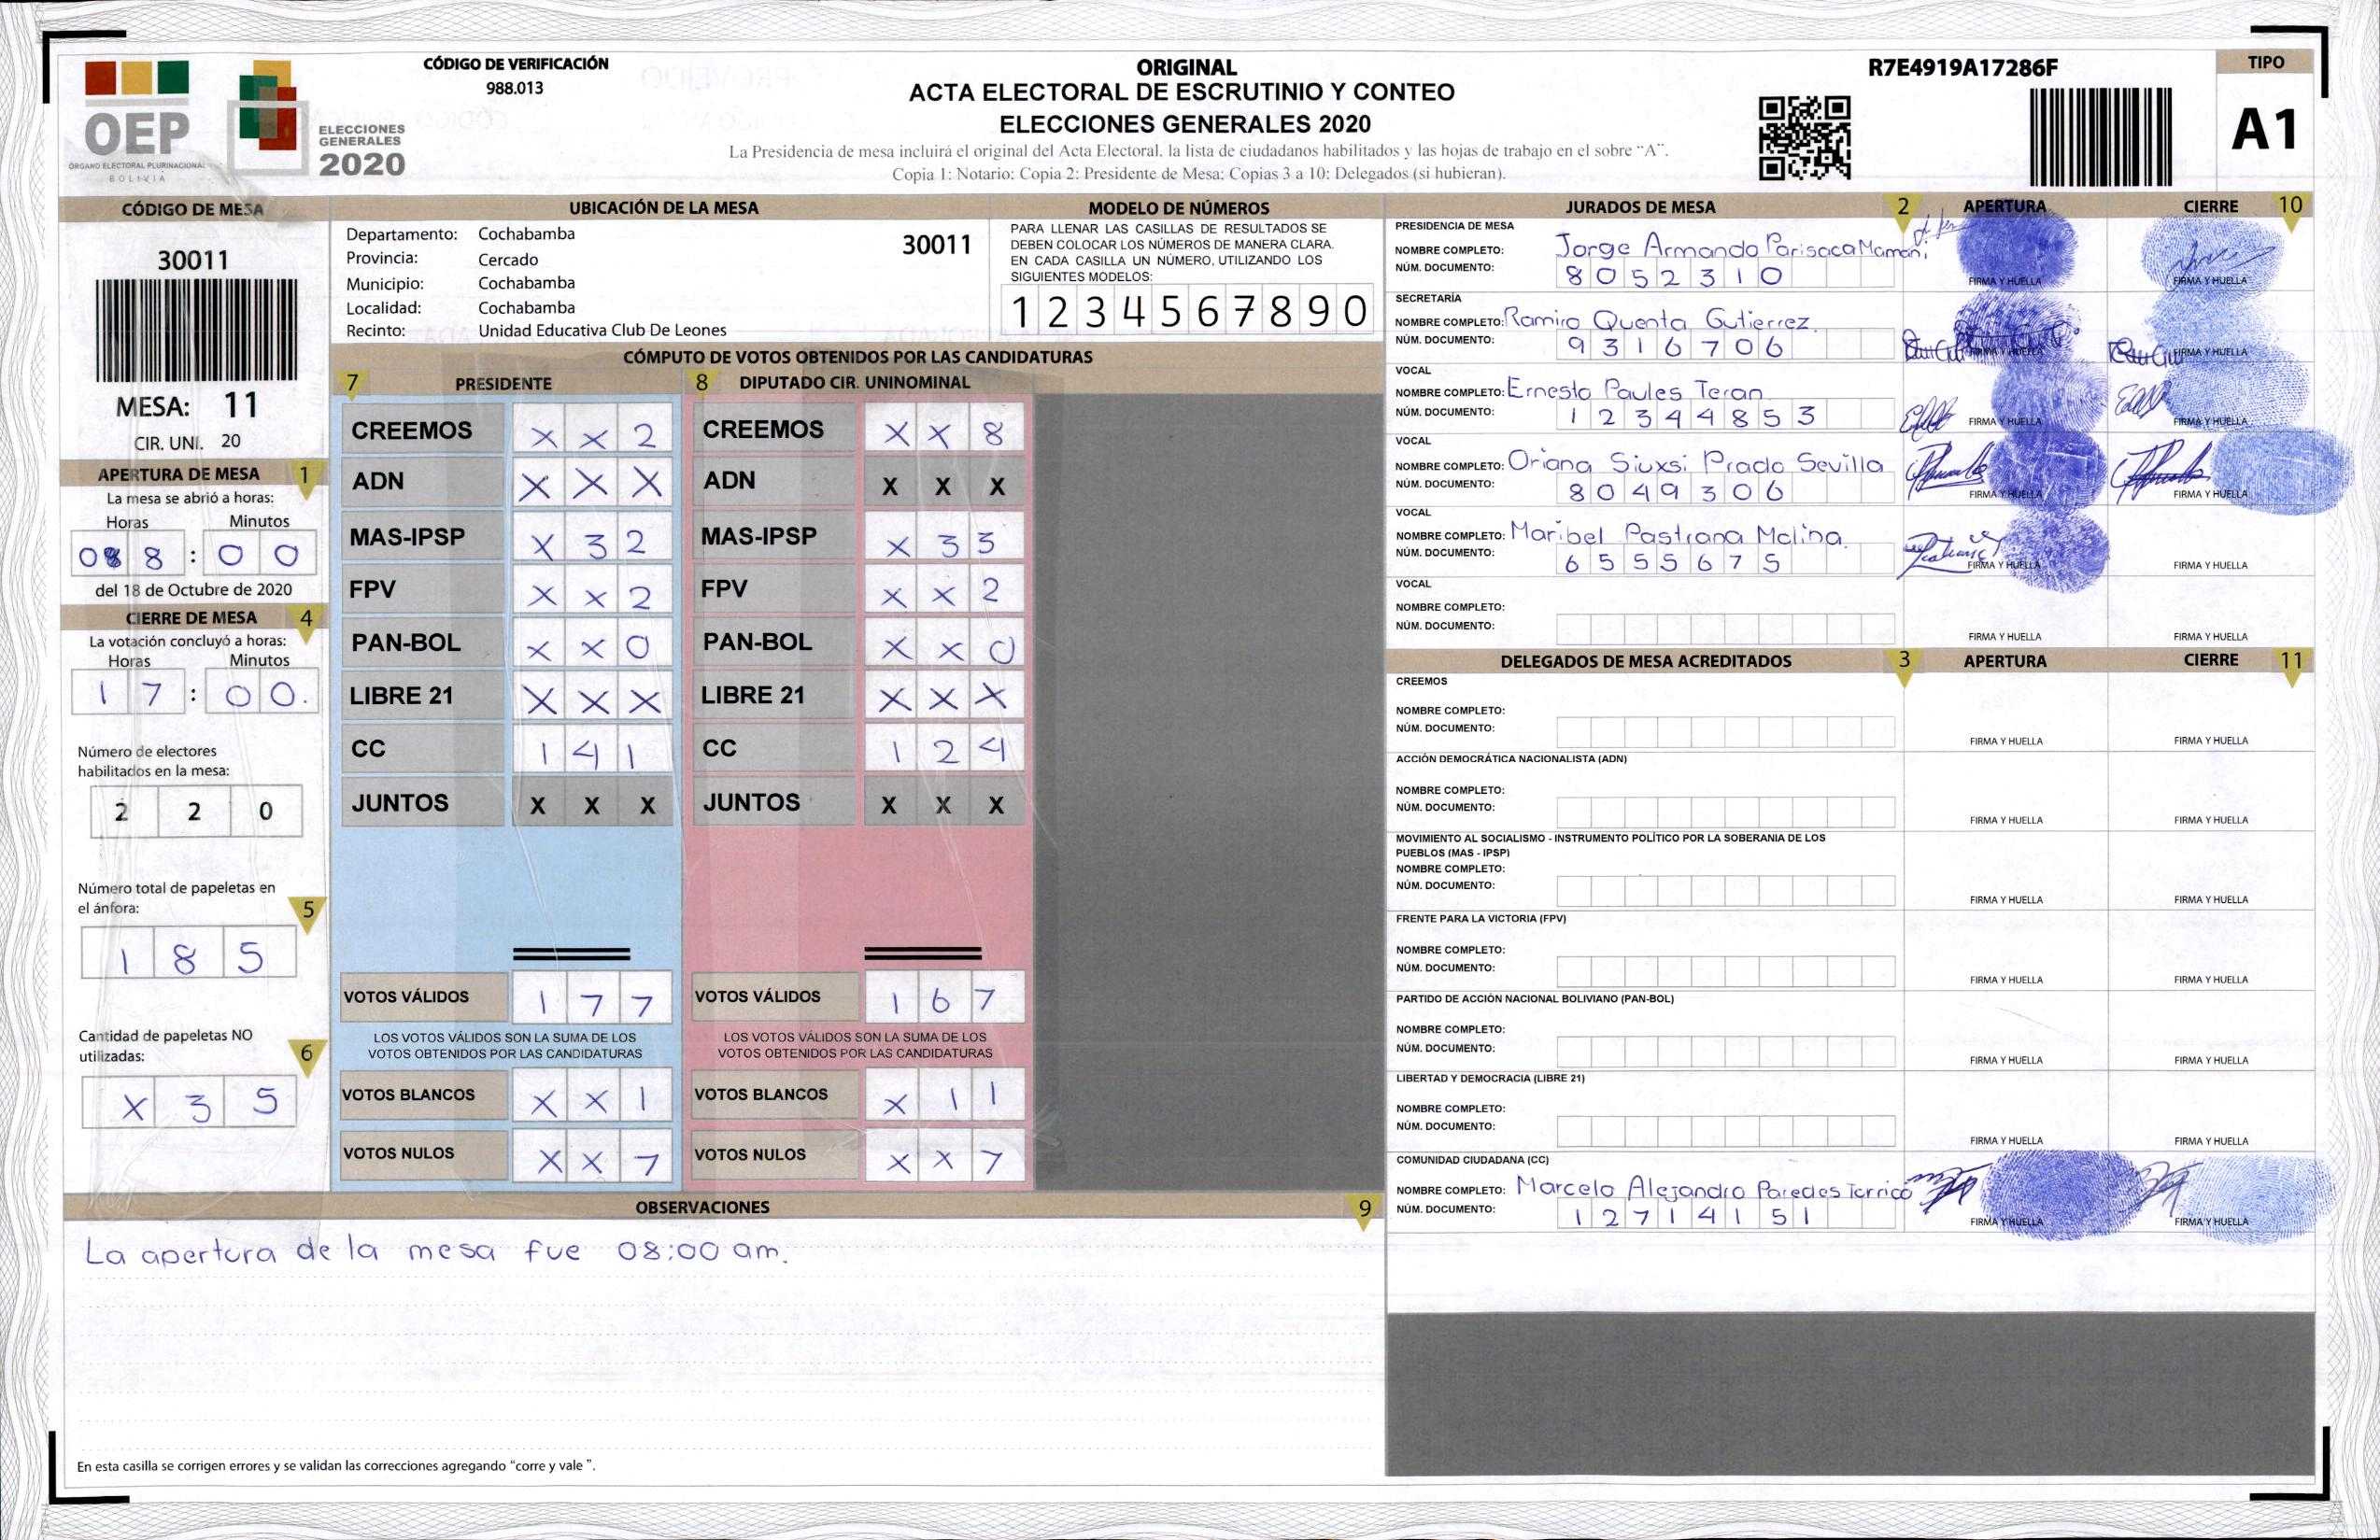 OEP
ÓRGANO ELECTORAL PLURINACIONAL
BOLIVIA
ELECCIONES
GENERALES
2020
CÓDIGO DE VERIFICACIÓN
988.013
ORIGINAL
ACTA ELECTORAL DE ESCRUTINIO Y CONTEO
ELECCIONES GENERALES 2020
La Presidencia de mesa incluirá el original del Acta Electoral, la lista de ciudadanos habilitados y las hojas de trabajo en el sobre "A".
Copia 1: Notario; Copia 2: Presidente de Mesa; Copias 3 a 10: Delegados (si hubieran).
R7E4919A17286F
TIPO
A1
CÓDIGO DE MESA
30011
MESA: 11
CIR. UNI. 20
APERTURA DE MESA 1
La mesa se abrió a horas:
Horas Minutos
08 : 00
del 18 de Octubre de 2020
CIERRE DE MESA 4
La votación concluyó a horas:
Horas Minutos
17 : 00.
Número de electores
habilitados en la mesa:
2 2 0
Número total de papeletas en
el ánfora: 5
1 8 5
Cantidad de papeletas NO
utilizadas: 6
X 3 5
UBICACIÓN DE LA MESA
Departamento: Cochabamba 30011
Provincia: Cercado
Municipio: Cochabamba
Localidad: Cochabamba
Recinto: Unidad Educativa Club De Leones
MODELO DE NÚMEROS
PARA LLENAR LAS CASILLAS DE RESULTADOS SE
DEBEN COLOCAR LOS NÚMEROS DE MANERA CLARA.
EN CADA CASILLA UN NÚMERO, UTILIZANDO LOS
SIGUIENTES MODELOS:
1 2 3 4 5 6 7 8 9 0
CÓMPUTO DE VOTOS OBTENIDOS POR LAS CANDIDATURAS
7 PRESIDENTE
CREEMOS X X 2
ADN X X X
MAS-IPSP X 3 2
FPV X X 2
PAN-BOL X X 0
LIBRE 21 X X X
CC 1 4 1
JUNTOS X X X
VOTOS VÁLIDOS 1 7 7
LOS VOTOS VÁLIDOS SON LA SUMA DE LOS
VOTOS OBTENIDOS POR LAS CANDIDATURAS
VOTOS BLANCOS X X 1
VOTOS NULOS X X 7
8 DIPUTADO CIR. UNINOMINAL
CREEMOS X X 8
ADN X X X
MAS-IPSP X 3 3
FPV X X 2
PAN-BOL X X 0
LIBRE 21 X X X
CC 1 2 4
JUNTOS X X X
VOTOS VÁLIDOS 1 6 7
LOS VOTOS VÁLIDOS SON LA SUMA DE LOS
VOTOS OBTENIDOS POR LAS CANDIDATURAS
VOTOS BLANCOS X 1 1
VOTOS NULOS X X 7
OBSERVACIONES 9
La apertura de la mesa fue 08:00 am.
En esta casilla se corrigen errores y se validan las correcciones agregando "corre y vale ".
JURADOS DE MESA 2 APERTURA CIERRE 10
PRESIDENCIA DE MESA
NOMBRE COMPLETO: Jorge Armando Parisaca Mamani
NÚM. DOCUMENTO: 8052310 FIRMA Y HUELLA FIRMA Y HUELLA
SECRETARÍA
NOMBRE COMPLETO: Ramiro Quenta Gutierrez
NÚM. DOCUMENTO: 9316706 FIRMA Y HUELLA FIRMA Y HUELLA
VOCAL
NOMBRE COMPLETO: Ernesto Paules Teran
NÚM. DOCUMENTO: 12344853 FIRMA Y HUELLA FIRMA Y HUELLA
VOCAL
NOMBRE COMPLETO: Oriana Siuxsi Prado Sevilla
NÚM. DOCUMENTO: 8049306 FIRMA Y HUELLA FIRMA Y HUELLA
VOCAL
NOMBRE COMPLETO: Maribel Pastrana Molina
NÚM. DOCUMENTO: 6555675 FIRMA Y HUELLA FIRMA Y HUELLA
VOCAL
NOMBRE COMPLETO:
NÚM. DOCUMENTO: FIRMA Y HUELLA FIRMA Y HUELLA
DELEGADOS DE MESA ACREDITADOS 3 APERTURA CIERRE 11
CREEMOS
NOMBRE COMPLETO:
NÚM. DOCUMENTO: FIRMA Y HUELLA FIRMA Y HUELLA
ACCIÓN DEMOCRÁTICA NACIONALISTA (ADN)
NOMBRE COMPLETO:
NÚM. DOCUMENTO: FIRMA Y HUELLA FIRMA Y HUELLA
MOVIMIENTO AL SOCIALISMO - INSTRUMENTO POLÍTICO POR LA SOBERANIA DE LOS
PUEBLOS (MAS - IPSP)
NOMBRE COMPLETO:
NÚM. DOCUMENTO: FIRMA Y HUELLA FIRMA Y HUELLA
FRENTE PARA LA VICTORIA (FPV)
NOMBRE COMPLETO:
NÚM. DOCUMENTO: FIRMA Y HUELLA FIRMA Y HUELLA
PARTIDO DE ACCIÓN NACIONAL BOLIVIANO (PAN-BOL)
NOMBRE COMPLETO:
NÚM. DOCUMENTO: FIRMA Y HUELLA FIRMA Y HUELLA
LIBERTAD Y DEMOCRACIA (LIBRE 21)
NOMBRE COMPLETO:
NÚM. DOCUMENTO: FIRMA Y HUELLA FIRMA Y HUELLA
COMUNIDAD CIUDADANA (CC)
NOMBRE COMPLETO: Marcelo Alejandro Paredes Torrico
NÚM. DOCUMENTO: 12714151 FIRMA Y HUELLA FIRMA Y HUELLA